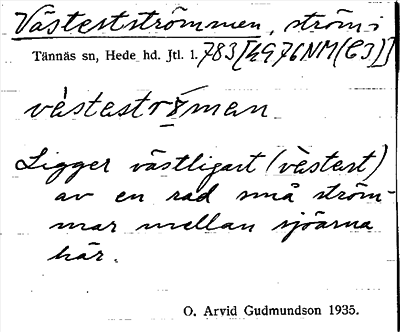 Västertströmmen, ström i
Tännäs sn, Hede hd. Jtl. l. 783 [hG76NM(C3)]
västeströ̀man
Ligger västligast (vä̀stest)
av en rad små ström-
mar mellan sjöarna
här.
O. Arvid Gudmundson 1935.